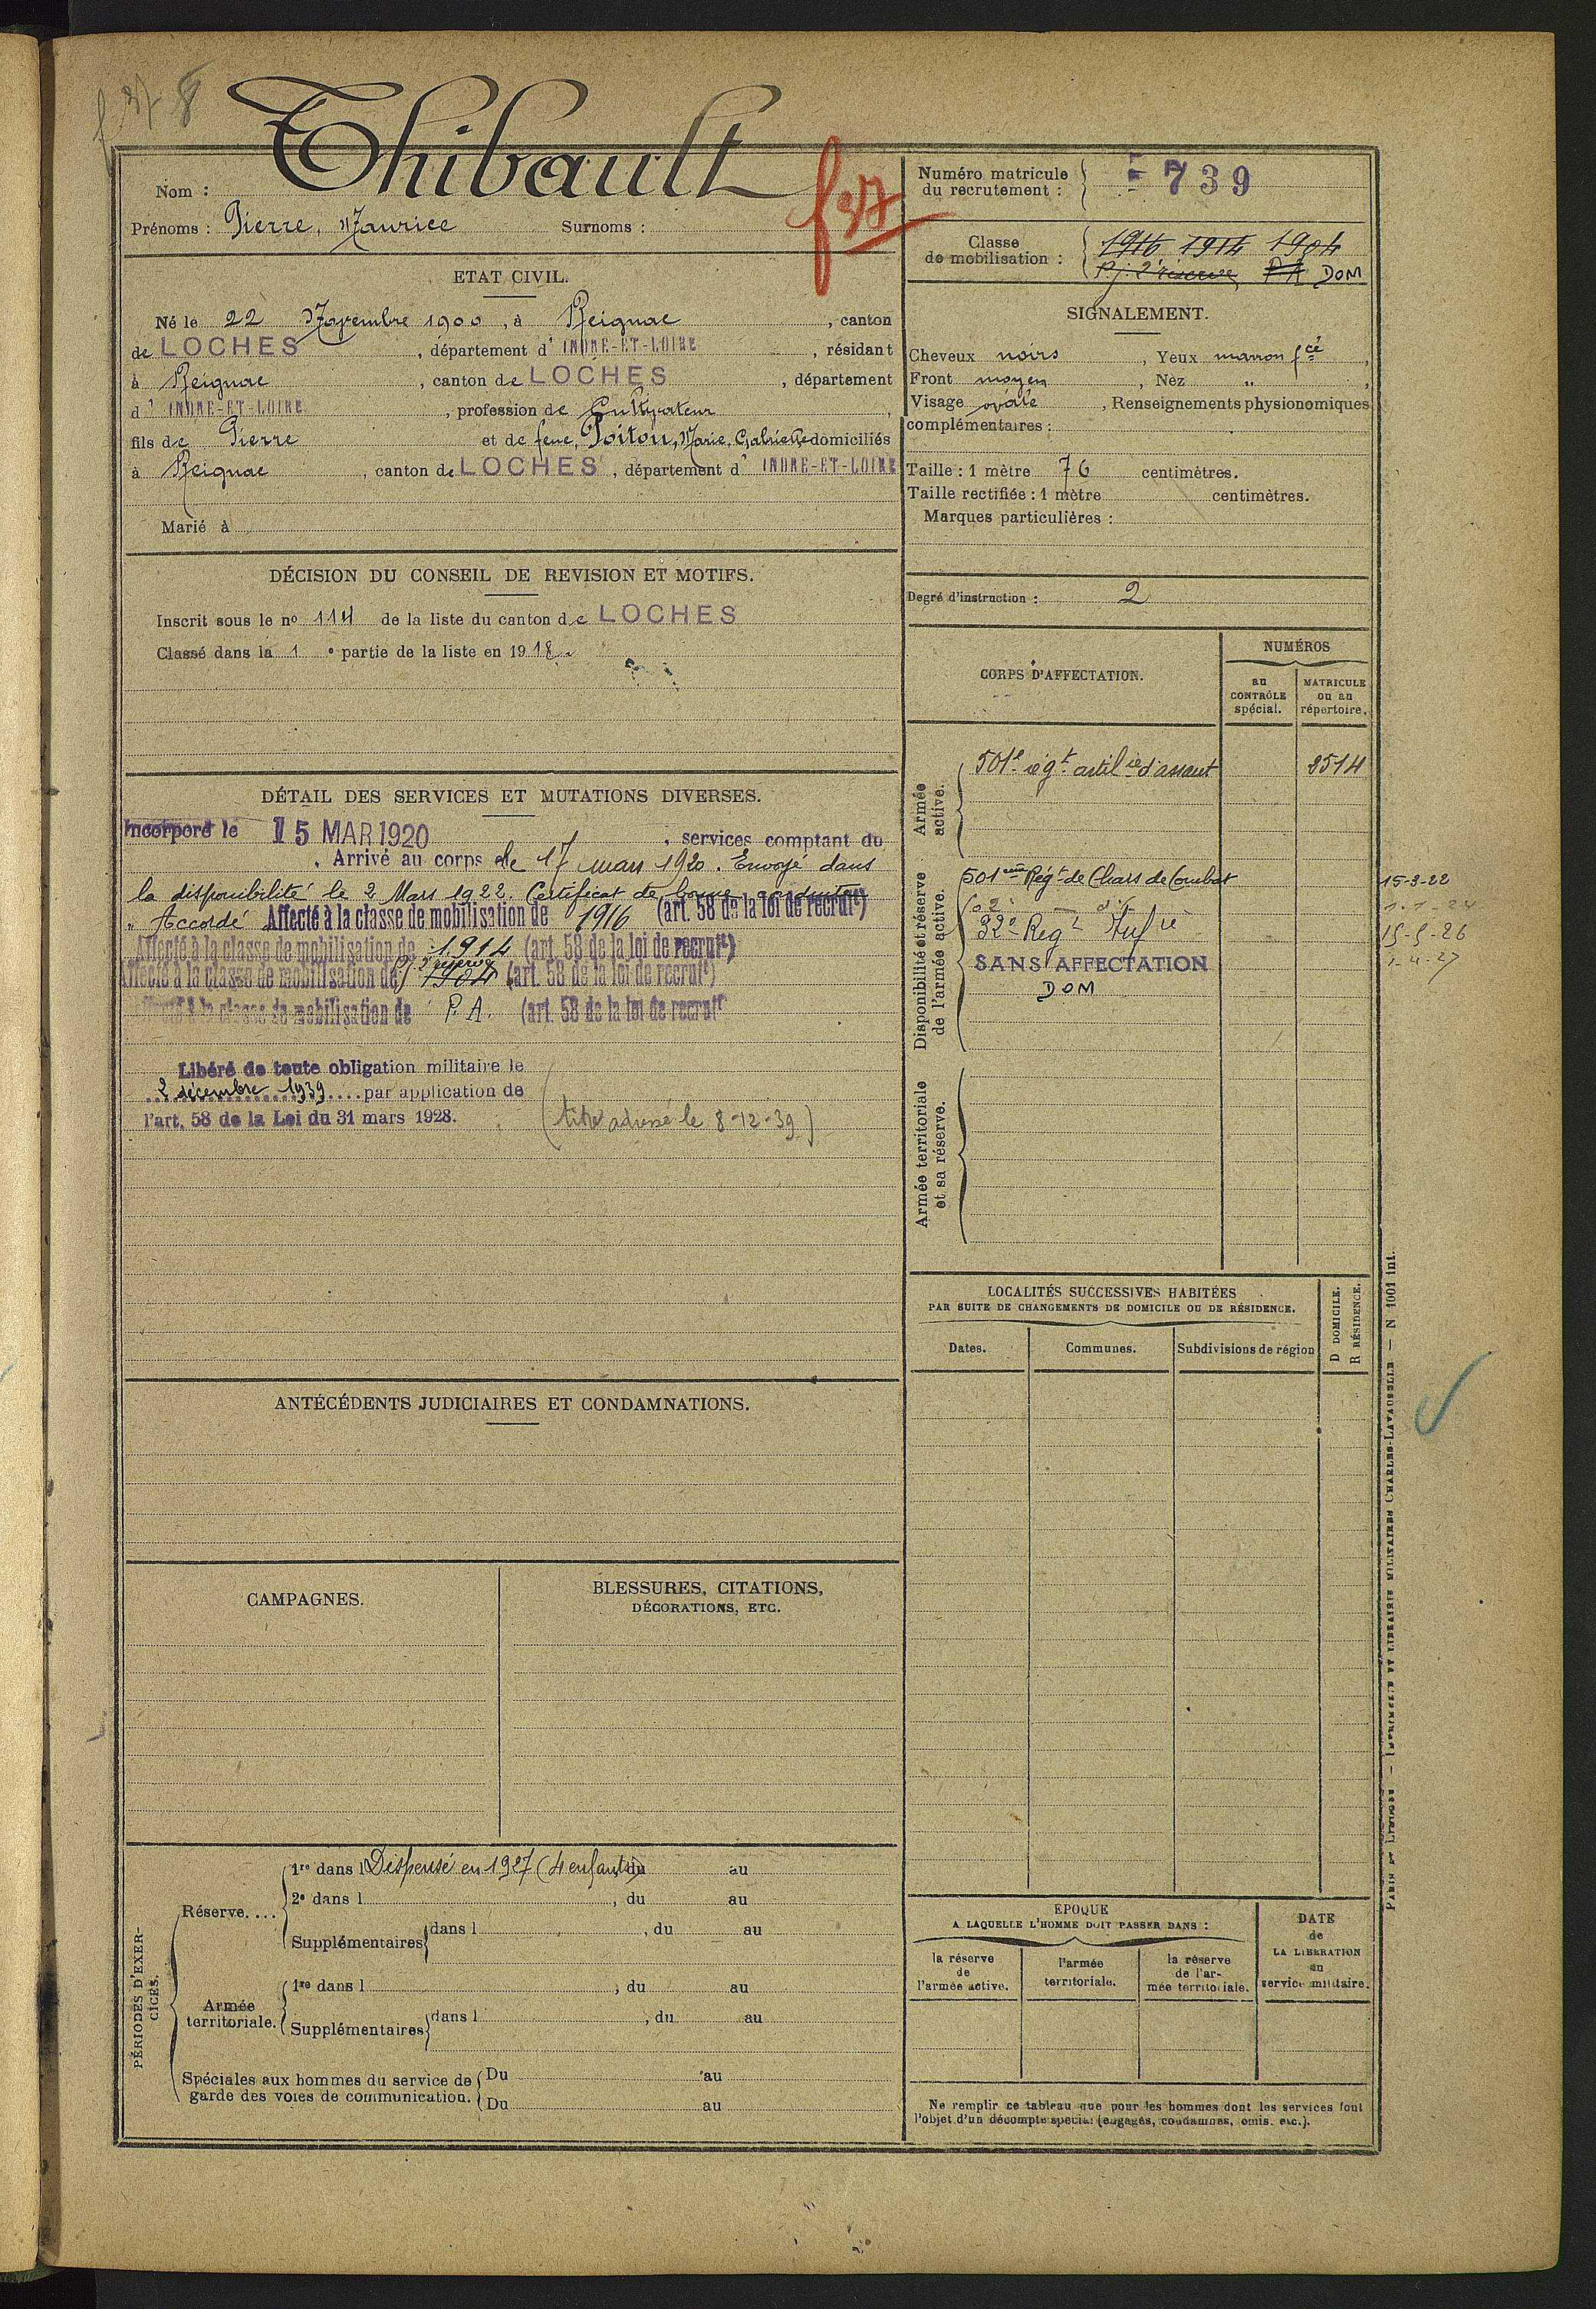 f 37
Thibault
Nom :
Prénoms : Pierre, Maurice Surnoms :
f 37
ETAT CIVIL.
Né le 22 Novembre 1900, à Reignac, canton
de LOCHES, département d' INDRE-ET-LOIRE, résidant
à Reignac, canton de LOCHES, département
d' INDRE-ET-LOIRE, profession de Cultivateur,
fils de Pierre et de feue, Poitou, Marie, Gabrielle domiciliés
à Reignac, canton de LOCHES, département d' INDRE-ET-LOIRE
Marié à
DÉCISION DU CONSEIL DE REVISION ET MOTIFS.
Inscrit sous le nº 114 de la liste du canton de LOCHES
Classé dans la 1 e partie de la liste en 1918.
DÉTAIL DES SERVICES ET MUTATIONS DIVERSES.
Incorporé le 15 MAR 1920, services comptant du
. Arrivé au corps le 17 mars 1920. Envoyé dans
la disponibilité le 2 Mars 1922. Certificat de bonne conduite
"Accordé" Affecté à la classe de mobilisation de 1916 (art. 58 de la loi de recrutt)
Affecté à la classe de mobilisation de 1914 (art. 58 de la loi de recrutt)
Affecté à la classe de mobilisation de Pj 2e réserve 1904 (art. 58 de la loi de recrutt)
Affecté à la classe de mobilisation de P.A. (art. 58 de la loi de recrutt)
Libéré de toute obligation militaire le
2 décembre 1939 .... par application de
l'art. 58 de la Loi du 31 mars 1928. (titre adressé le 8-12-39)
ANTÉCÉDENTS JUDICIAIRES ET CONDAMNATIONS.
CAMPAGNES.
BLESSURES, CITATIONS,
DÉCORATIONS, ETC.
PÉRIODES D'EXERCICES.
Réserve....
1re dans l Dispensé en 1927 (4 enfants) du au
2e dans l, du au
Supplémentaires dans l, du au
Armée territoriale.
1re dans l, du au
Supplémentaires dans l, du au
Spéciales aux hommes du service de
garde des voies de communication.
Du au
Du au
Numéro matricule
du recrutement : 739
Classe
de mobilisation : 1916 1914 1904
Pj. 2e réserve PA DOM
SIGNALEMENT.
Cheveux noirs, Yeux marron fcé
Front moyen, Nez "
Visage ovale, Renseignements physionomiques
complémentaires :
Taille : 1 mètre 76 centimètres.
Taille rectifiée : 1 mètre centimètres.
Marques particulières :
Degré d'instruction : 2
CORPS D'AFFECTATION.
NUMÉROS
au
CONTRÔLE
spécial.
MATRICULE
ou au
répertoire.
Armée
active.
501e régt artilie d'assaut 2514
Disponibilité et réserve
de l'armée active.
501ème Régt de Chars de Combat 15-3-22
502e — d° — 1-1-24
32e Régt Infie 15-5-26
SANS AFFECTATION 1-4-27
DOM
Armée territoriale
et sa réserve.
LOCALITÉS SUCCESSIVES HABITÉES
PAR SUITE DE CHANGEMENTS DE DOMICILE OU DE RÉSIDENCE.
Dates.
Communes.
Subdivisions de région
D DOMICILE.
R RÉSIDENCE.
EPOQUE
A LAQUELLE L'HOMME DOIT PASSER DANS :
la réserve
de
l'armée active.
l'armée
territoriale.
la réserve
de l'ar-
mée territoriale.
DATE
de
LA LIBÉRATION
du
service militaire.
Ne remplir ce tableau que pour les hommes dont les services font
l'objet d'un décompte spécial (engagés, condamnés, omis, etc.).
PARIS ET LIMOGES. — IMPRIMERIE ET LIBRAIRIE MILITAIRES CHARLES-LAVAUZELLE — N 1001 int.